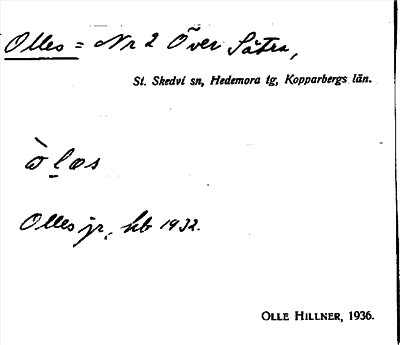 Olles = Nr 2 Över Sätra,
St. Skedvi sn, Hedemora tg, Kopparbergs län.
òl̠æs
Olles jr, hb 1932.
OLLE HILLNER, 1936.